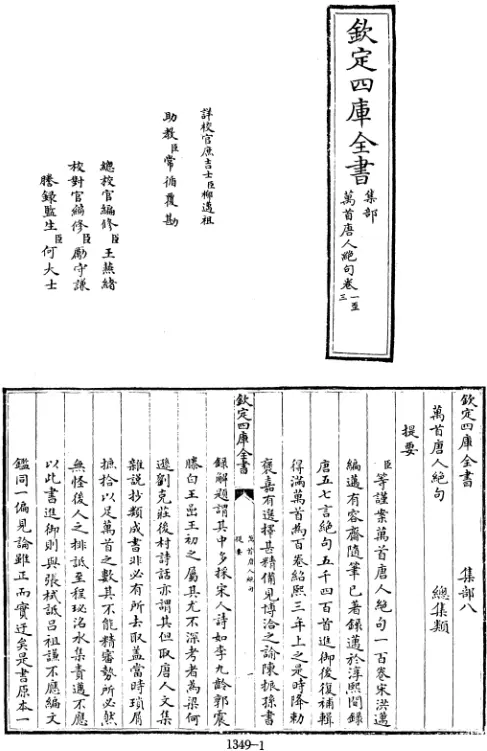 欽定四庫全書
集部
萬首唐人絶句卷一至三
詳校官庶吉士臣柳邁祖
助教臣常循覆勘
總校官編修臣王燕緒
校對官編修臣勵守謙
謄録監生臣何大士
欽定四庫全書 集部八
萬首唐人絶句 總集類
提要
臣等謹案萬首唐人絶句一百卷宋洪邁
編邁有容齋隨筆已著録邁於淳熙間録
唐五七言絶句五千四百首進御後復補輯
得滿萬首為百卷紹熙三年上之是時降勅
褒嘉有選擇甚精備見博洽之諭陳振孫書
欽定四庫全書
萬首唐人絶句
提要
録解題謂其中多採宋人詩如李九齡郭震
滕白王嵒王初之屬其尤不深考者為梁何
遜劉克莊後村詩話亦謂其但取唐人文集
雜說抄類成書非必有所去取蓋當時瑣屑
摭拾以足萬首之數其不能精審勢所必然
無怪後人之排詆至程珌洺水集責邁不應
以此書進御則與張栻詆吕祖謙不應編文
鑑同一偏見論雖正而實迂矣是書原本一
1349-1